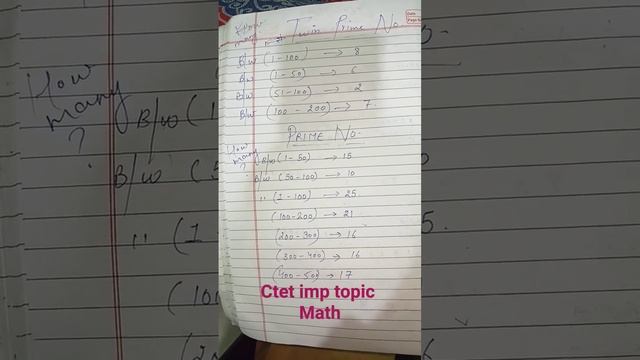 How many
Twin Prime No.
B/w (1-100) → 8
B/w (1-50) → 6
B/w (51-100) → 2
B/w (100 - 200) → 7.
PRIME No.
How many?
B/w (1-50) → 15
B/w (50-100) → 10
" (1-100) → 25
(100-200) → 21
(200-300) → 16
(300-400) → 16
(400-500) → 17
Ctet imp topic
Math